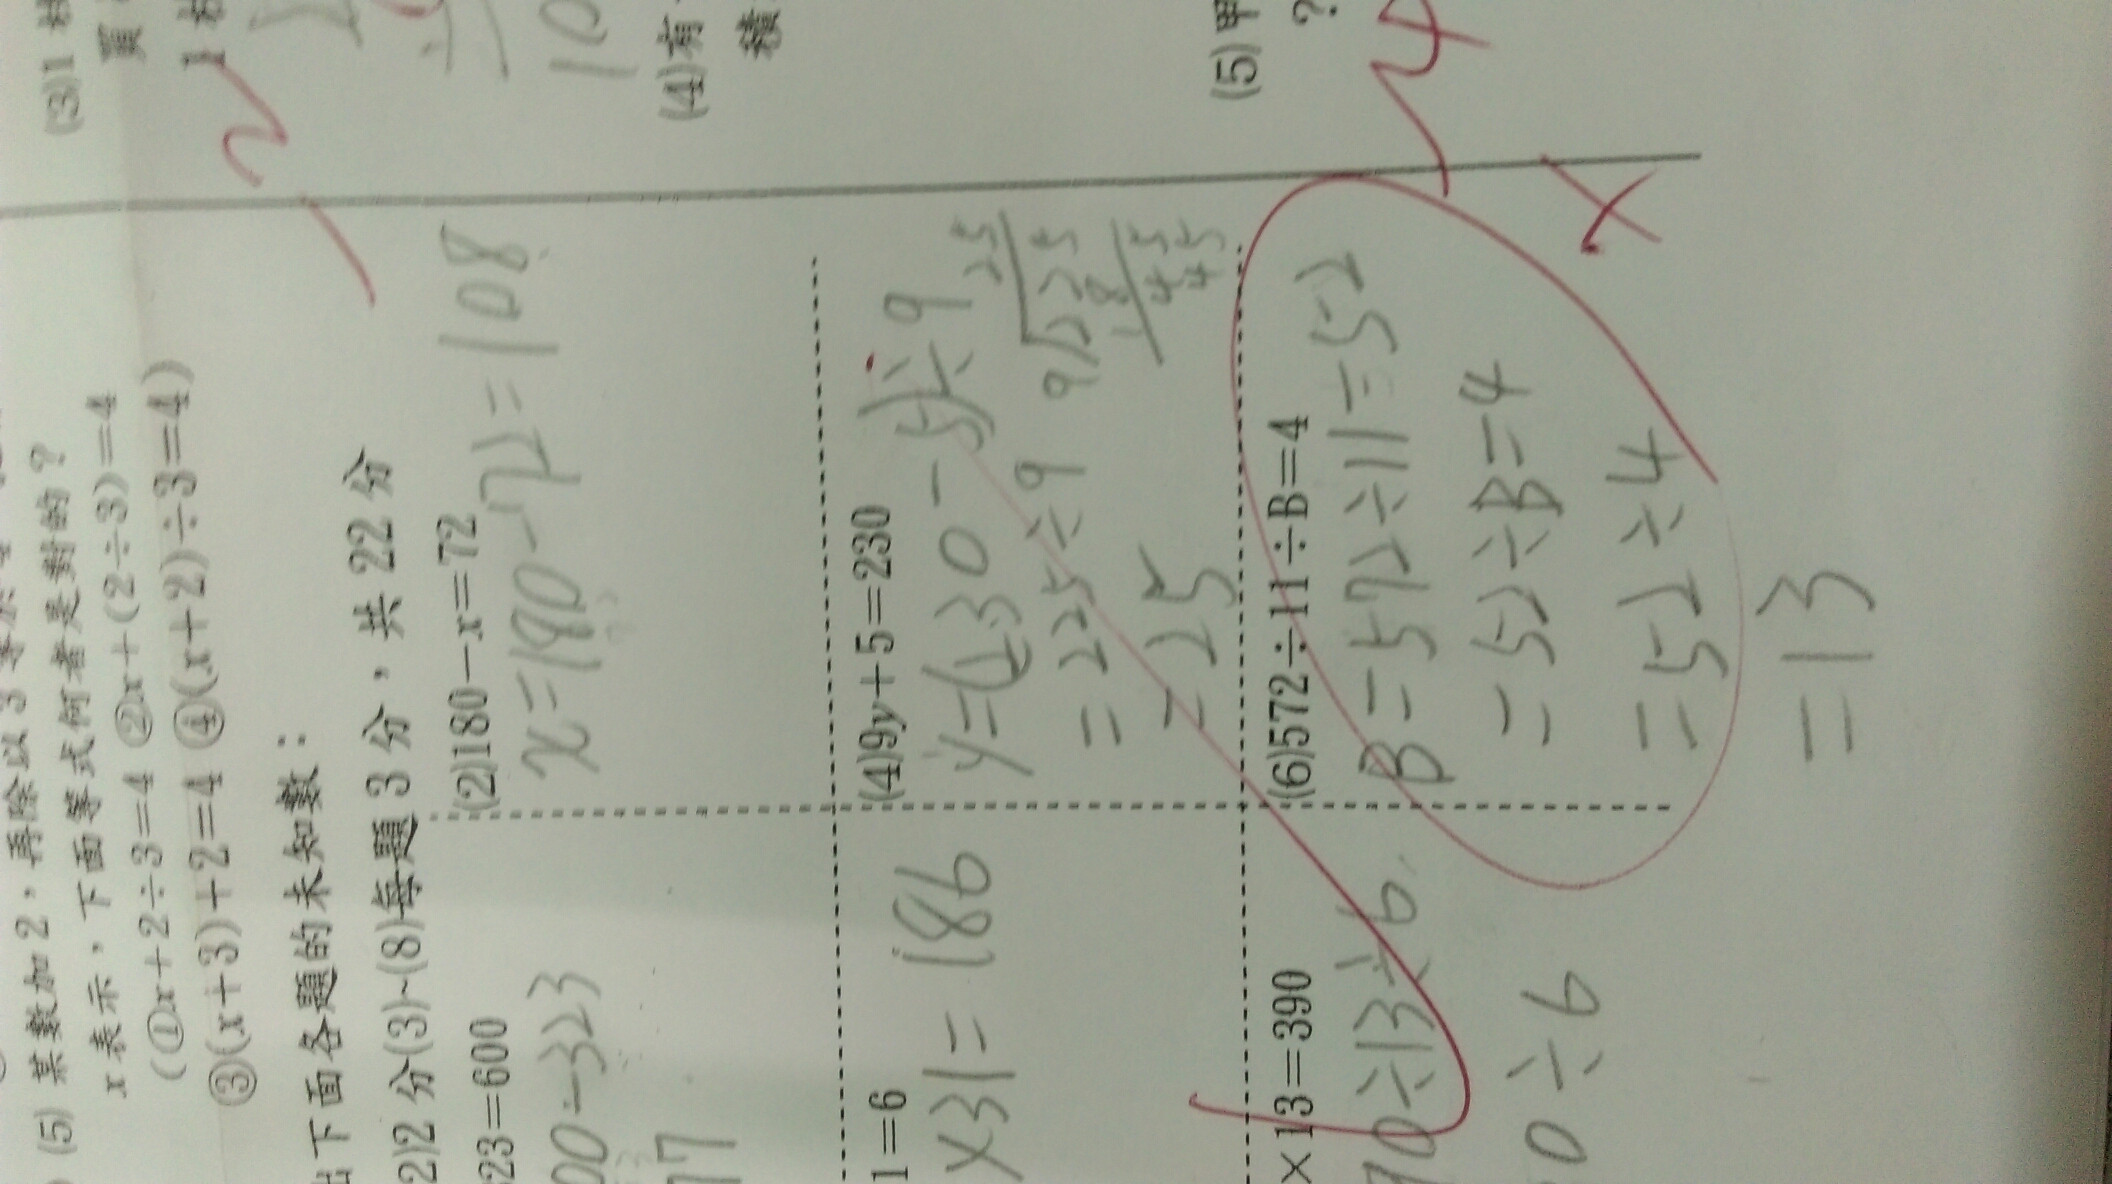 (5) 某數加2，再除以3
x表示，下面等式何者是對的？
(①x＋2÷3＝4 ②x＋(2÷3)＝4
③(x＋3)＋2＝4 ④(x＋2)÷3＝4)
出下面各題的未知數：
2)2分(3)~(8)每題3分，共22分
23＝600
00-323
77
(2)180－x＝72
x=180-72=108
1＝6
×31=186
(4)9y＋5＝230
y=(230-5)÷9
=225÷9
=25
25
9 225
18
45
45
×13＝390
90÷13÷6
0÷6
(6)572÷11÷B＝4
B=572÷11=52
=52÷B=4
=52÷4
=13
(3)1
買
1
10
(4)有
積
(5)甲
?